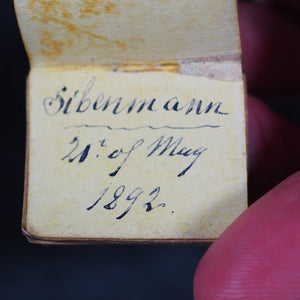 Sibenmann
21st of May
1892.